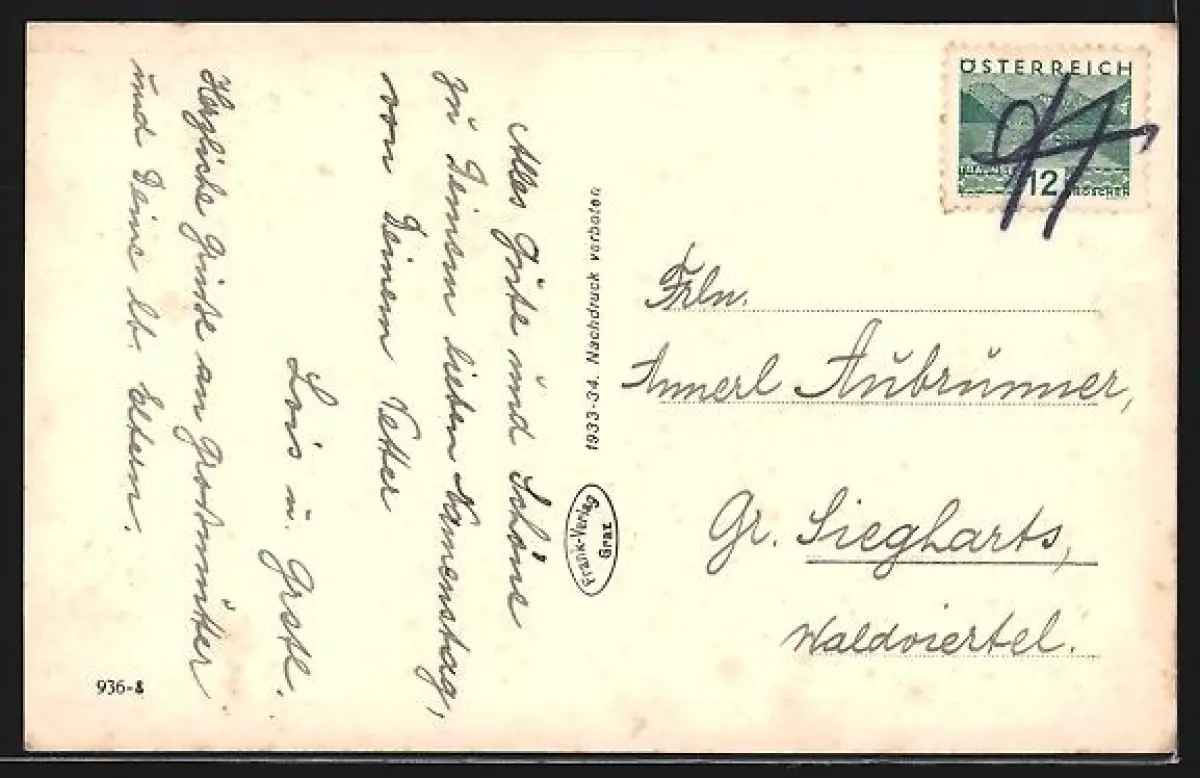 Alles Gute und Schöne
zu Deinem lieben Namenstag,
von Deinem Vetter
Lois u. Gretl.
Herzliche Grüße an Großmutter
und Deine lb. Eltern.
936-8
1933-34. Nachdruck verboten
Frank-Verlag
Graz
ÖSTERREICH
12 GROSCHEN
Frln.
Annerl Aubrunner,
Gr. Siegharts,
Waldviertel.